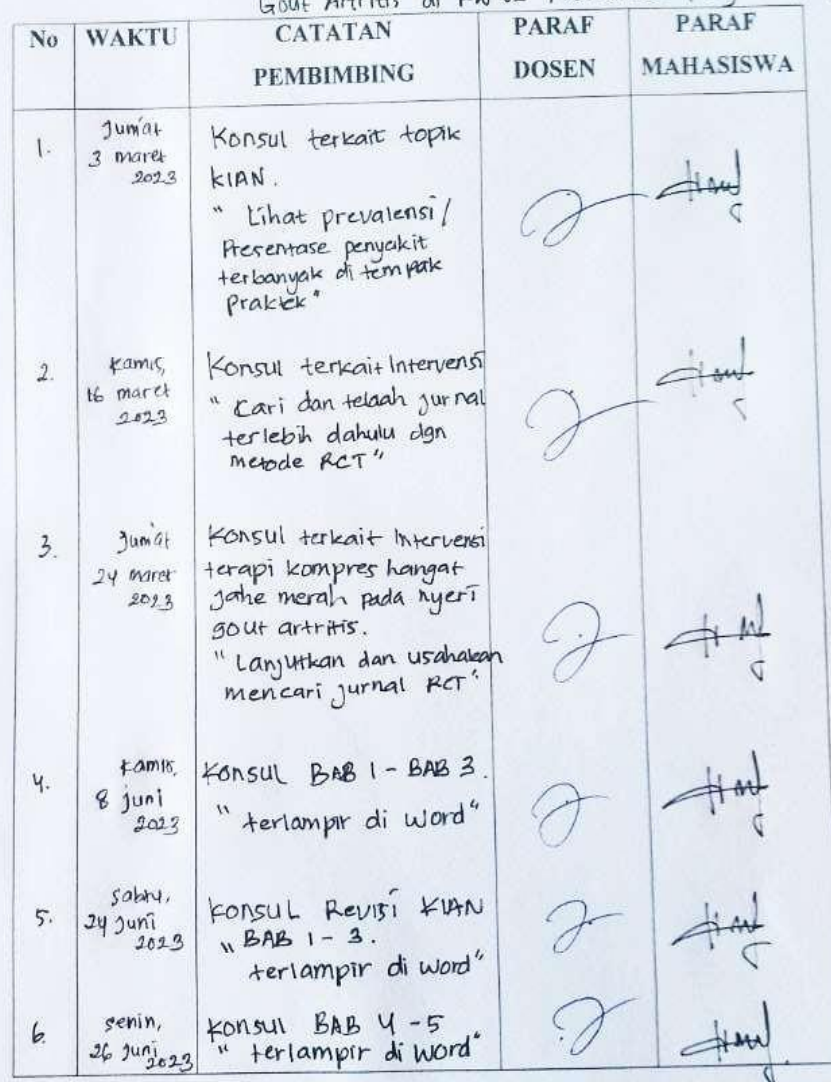 Gout Artritis di
No WAKTU CATATAN PEMBIMBING PARAF DOSEN PARAF MAHASISWA
1. Jum'at 3 maret 2023
Konsul terkait topik
KIAN.
" Lihat prevalensi /
Presentase penyakit
terbanyak di tempak
praktek"
2. Kamis, 16 maret 2023
Konsul terkait Intervensi
" Cari dan telaah jurnal
terlebih dahulu dgn
metode RCT"
3. Jum'at 24 maret 2023
Konsul terkait Intervensi
terapi kompres hangat
jahe merah pada nyeri
gout artritis.
" Lanjutkan dan usahakan
mencari jurnal RCT"
4. Kamis, 8 juni 2023
Konsul BAB 1 - BAB 3.
" terlampir di word"
5. Sabtu, 24 Juni 2023
Konsul Revisi KIAN
" BAB 1 - 3.
terlampir di word"
6. Senin, 26 Juni 2023
Konsul BAB 4 - 5
" terlampir di word"